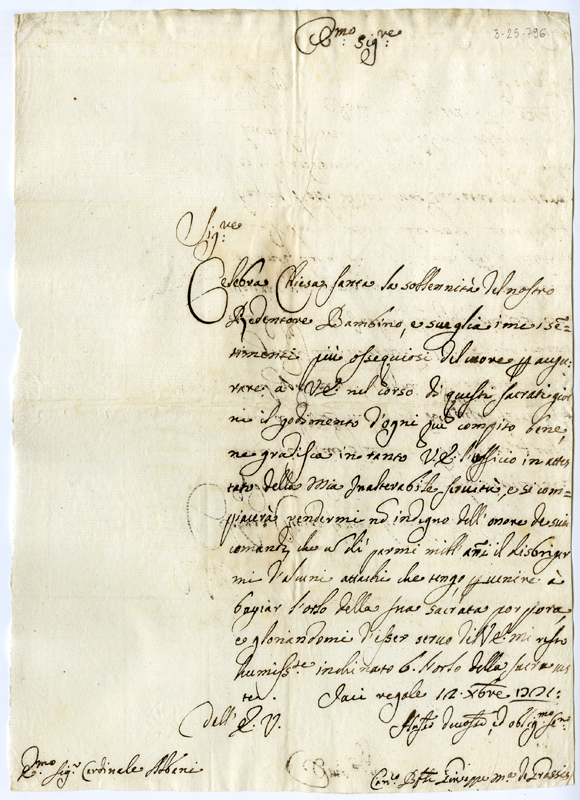 E.mo Sig.re
3-25-796
Sig.re
Celebra Chiesa santa la sollennità del nostro
Redentore Bambino, e sueglia i miei sē=
timenti più ossequiosi del cuore augu=
rare à V.E. nel corso di questi sacrati gior
ni il godimento d'ogni più compito bene,
ne gradisca in tanto V.E. l'officio in attes
tato della mia Inalterabile seruitù, e si com=
piacerà rendermi nō indigno dell'onore de suoi
comandi, che à dì parmi mill'anni il disbrigar
mi d'alcuni attachi che tengo, venire à
bagiar l'orlo della sua sacrata porpora,
e gloriandomi d'esser seruo di V.E. mi resto
humiss.te inchinato b. l'orlo della sacra
Iaci regale 12 Xbre
dell' E. V.
deuoti.o oblig.mo
E.mo Sig.r Cardinale Albani
Can.co Giuseppe M.a de